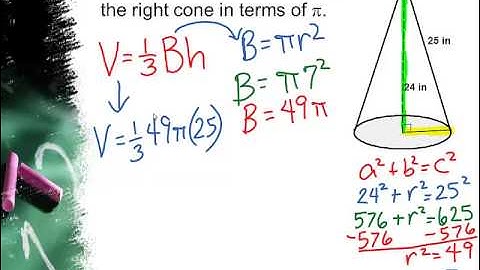 the right cone in terms of π.
V = 1/3 Bh
B = πr²
B = π7²
B = 49π
V = 1/3 49π(25)
25 in
24 in
a² + b² = c²
24² + r² = 25²
576 + r² = 625
-576 -576
r² = 49